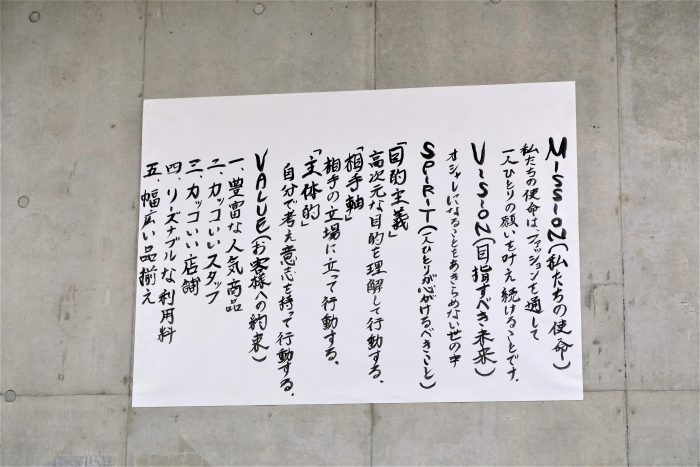 MISSION(私たちの使命)
私たちの使命は、ファッションを通して
一人ひとりの願いを叶え続けることです。
VISION(目指すべき未来)
オシャレになることをあきらめない世の中
SPIRIT(一人ひとりが心がけるべきこと)
「目的主義」
高次元な目的を理解して行動する。
「相手軸」
相手の立場に立って行動する。
「主体的」
自分で考え意志を持って行動する。
VALUE(お客様への約束)
一、豊富な人気商品
二、カッコいいスタッフ
三、カッコいい店舗
四、リーズナブルな利用料
五、幅広い品揃え